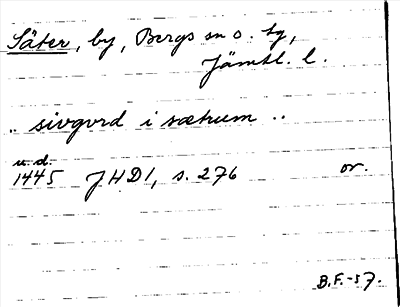 Säter, by, Bergs sn o. tg,
Jämtl. l.
.. sivgvrd i sætrum ..
u.d.
1445 JHD1, s. 276 or.
B.F.-57.